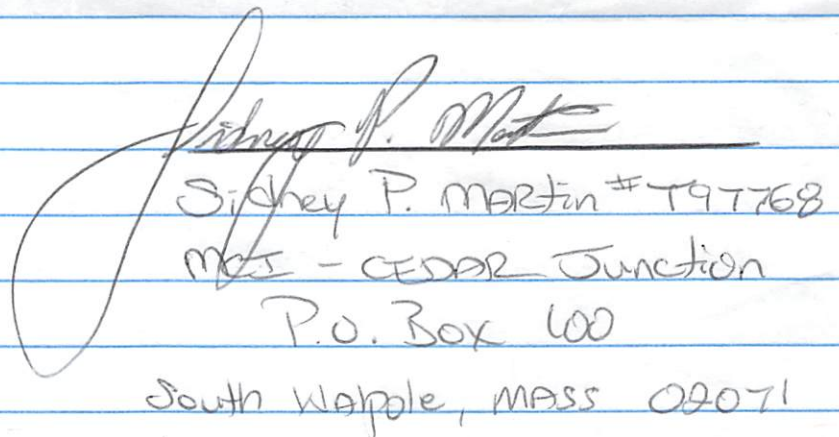 Sidney P. Martin
Sidney P. MARtin #T97768
MCI - CEDAR Junction
P.O. Box 100
South WAlpole, MASS 02071